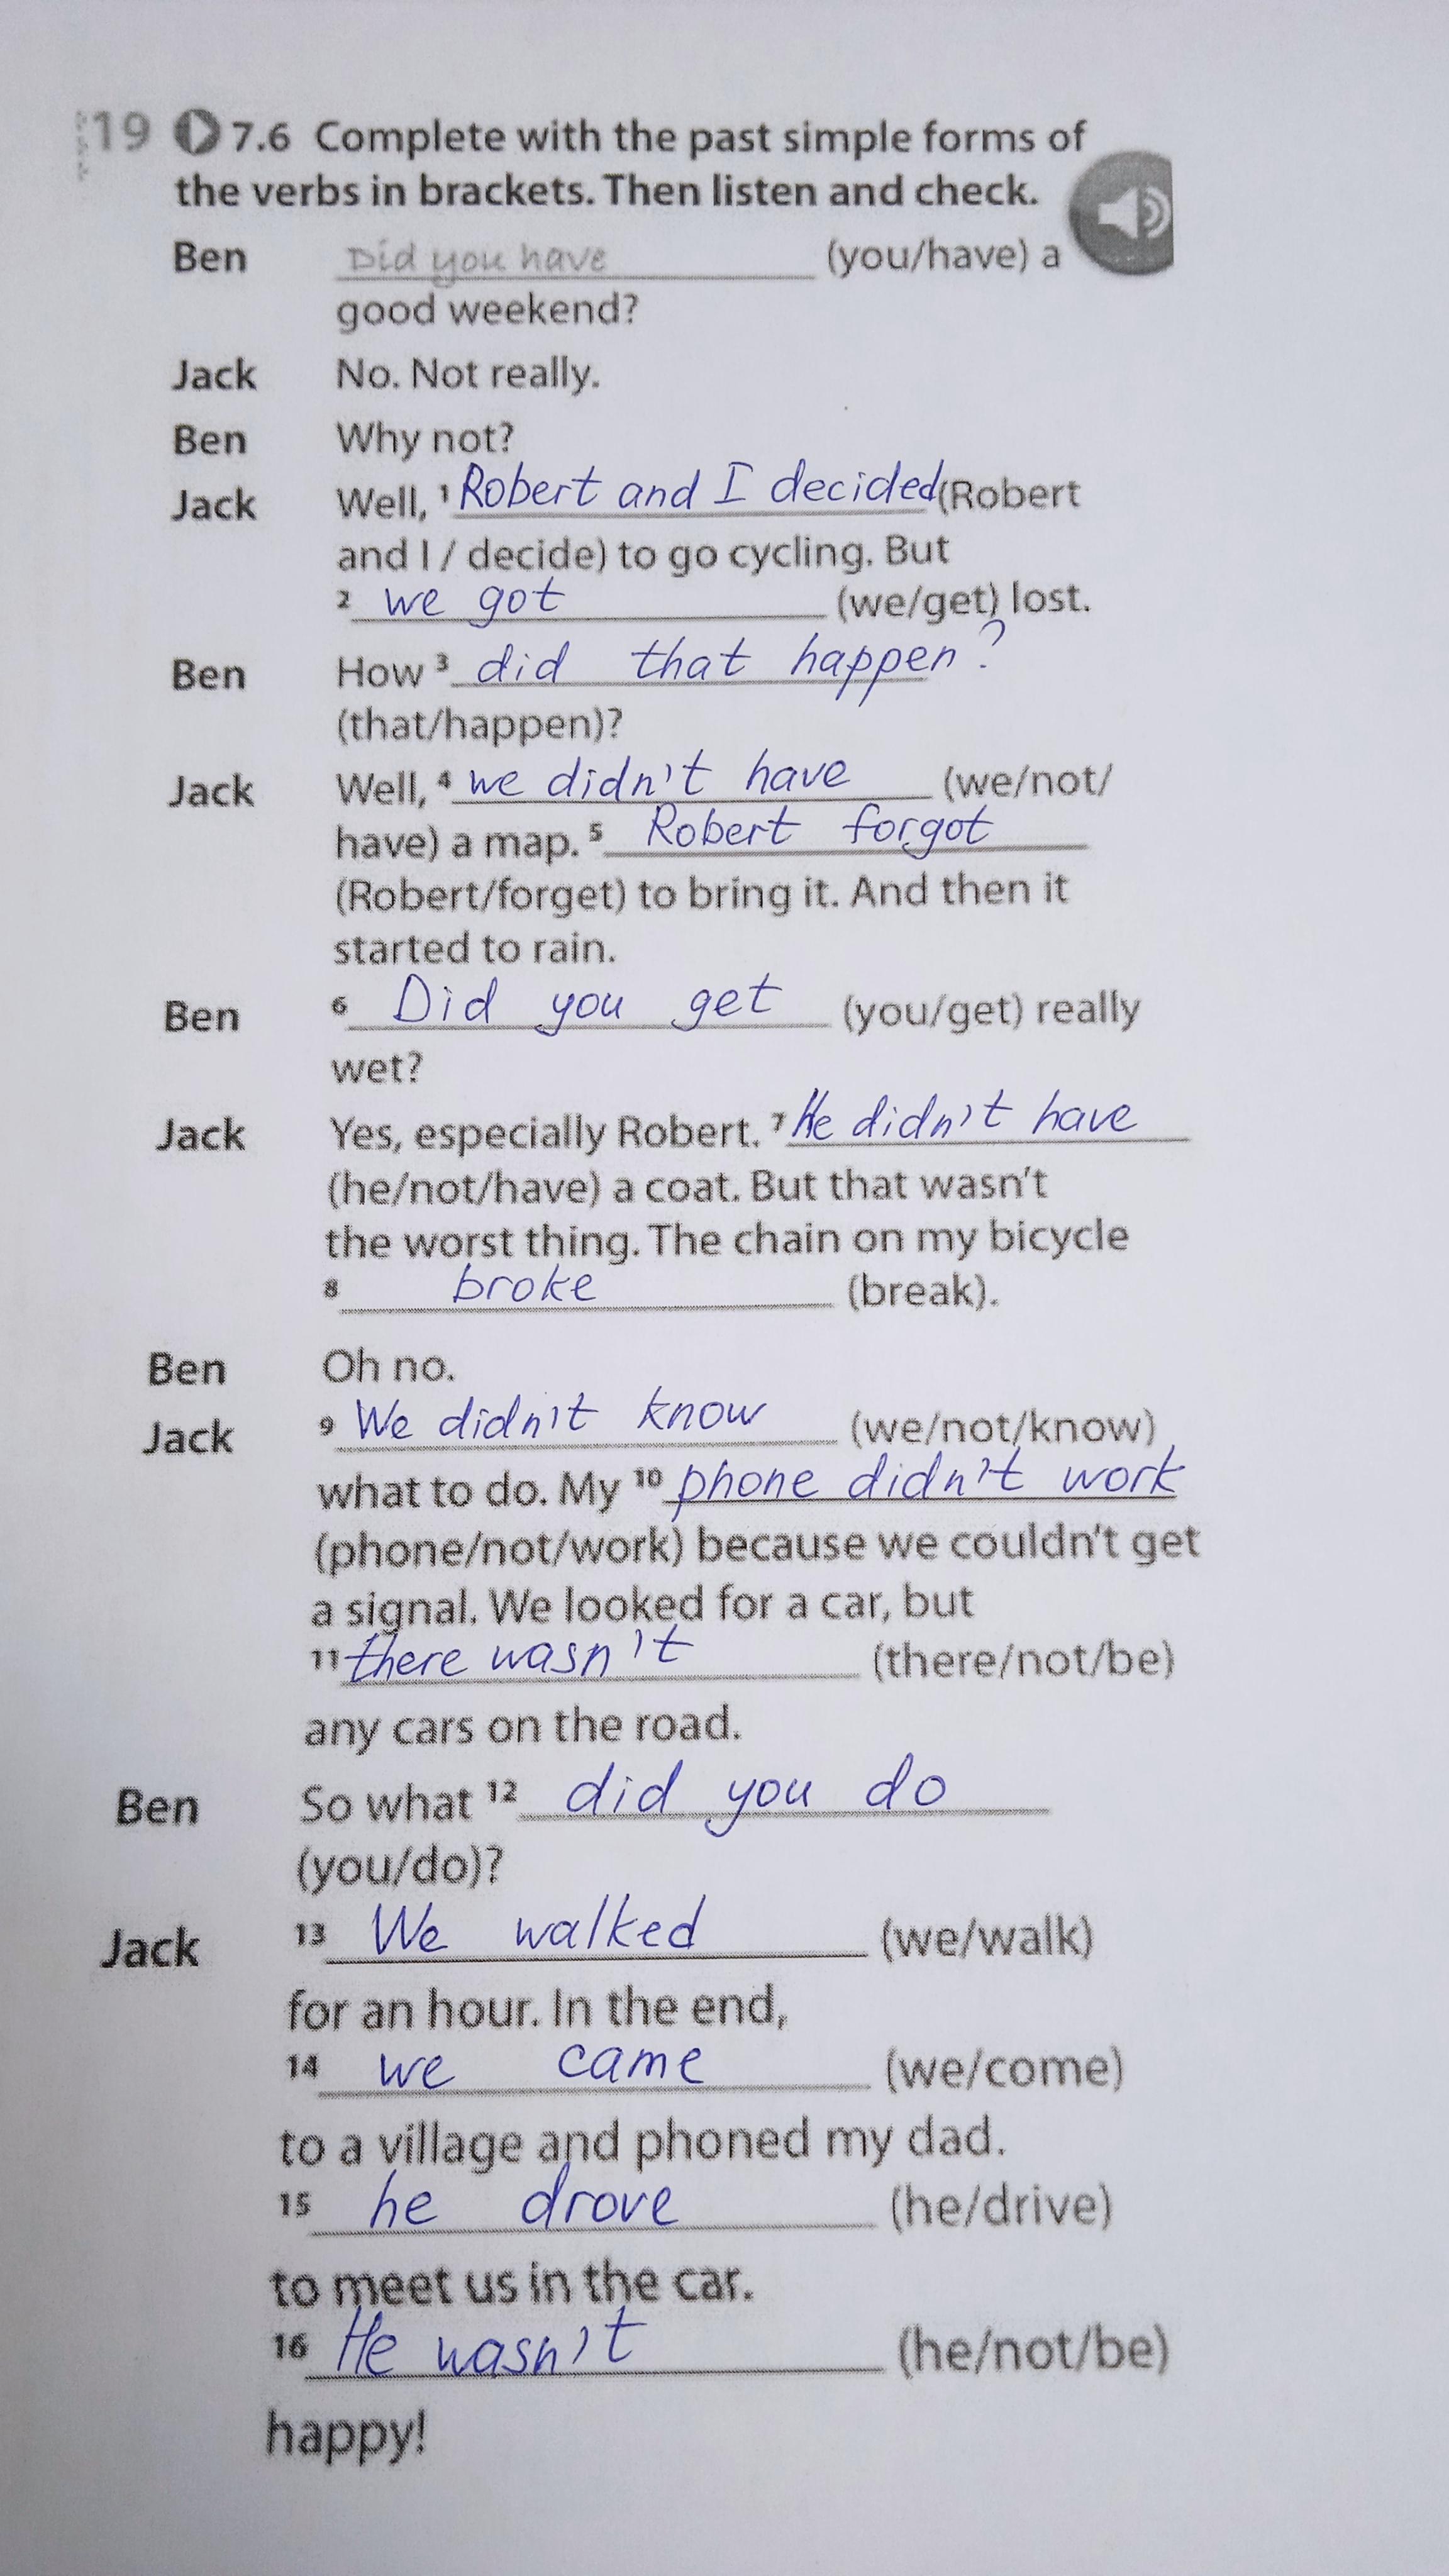 19 7.6 Complete with the past simple forms of
the verbs in brackets. Then listen and check.
Ben Did you have (you/have) a
good weekend?
Jack No. Not really.
Ben Why not?
Jack Well, 1 Robert and I decided (Robert
and I / decide) to go cycling. But
2 we got (we/get) lost.
Ben How 3 did that happen?
(that/happen)?
Jack Well, 4 we didn't have (we/not/
have) a map. 5 Robert forgot
(Robert/forget) to bring it. And then it
started to rain.
Ben 6 Did you get (you/get) really
wet?
Jack Yes, especially Robert. 7 He didn't have
(he/not/have) a coat. But that wasn't
the worst thing. The chain on my bicycle
8 broke (break).
Ben Oh no.
Jack 9 We didn't know (we/not/know)
what to do. My 10 phone didn't work
(phone/not/work) because we couldn't get
a signal. We looked for a car, but
11 there wasn't (there/not/be)
any cars on the road.
Ben So what 12 did you do
(you/do)?
Jack 13 We walked (we/walk)
for an hour. In the end,
14 we came (we/come)
to a village and phoned my dad.
15 he drove (he/drive)
to meet us in the car.
16 He wasn't (he/not/be)
happy!